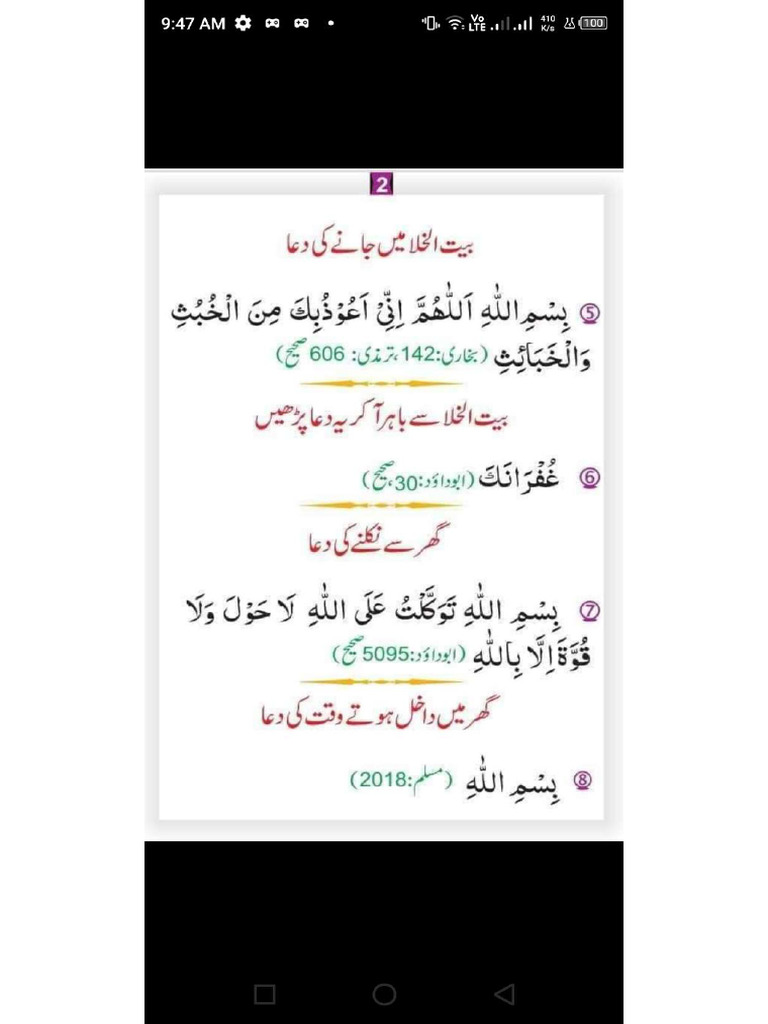 9:47 AM
Vo LTE 410 K/s 100
2
بیت الخلا میں جانے کی دعا
⑤ بِسْمِ اللّٰهِ اَللّٰهُمَّ اِنِّیْ اَعُوْذُبِكَ مِنَ الْخُبُثِ
وَالْخَبَائِثِ (بخاری:142، ترمذی: 606 صحیح)
بیت الخلا سے باہر آ کر یہ دعا پڑھیں
⑥ غُفْرَانَكَ (ابوداؤد:30، صحیح)
گھر سے نکلنے کی دعا
⑦ بِسْمِ اللّٰهِ تَوَكَّلْتُ عَلَى اللّٰهِ لَا حَوْلَ وَلَا
قُوَّةَ اِلَّا بِاللّٰهِ (ابوداؤد:5095 صحیح)
گھر میں داخل ہوتے وقت کی دعا
⑧ بِسْمِ اللّٰهِ (مسلم:2018)